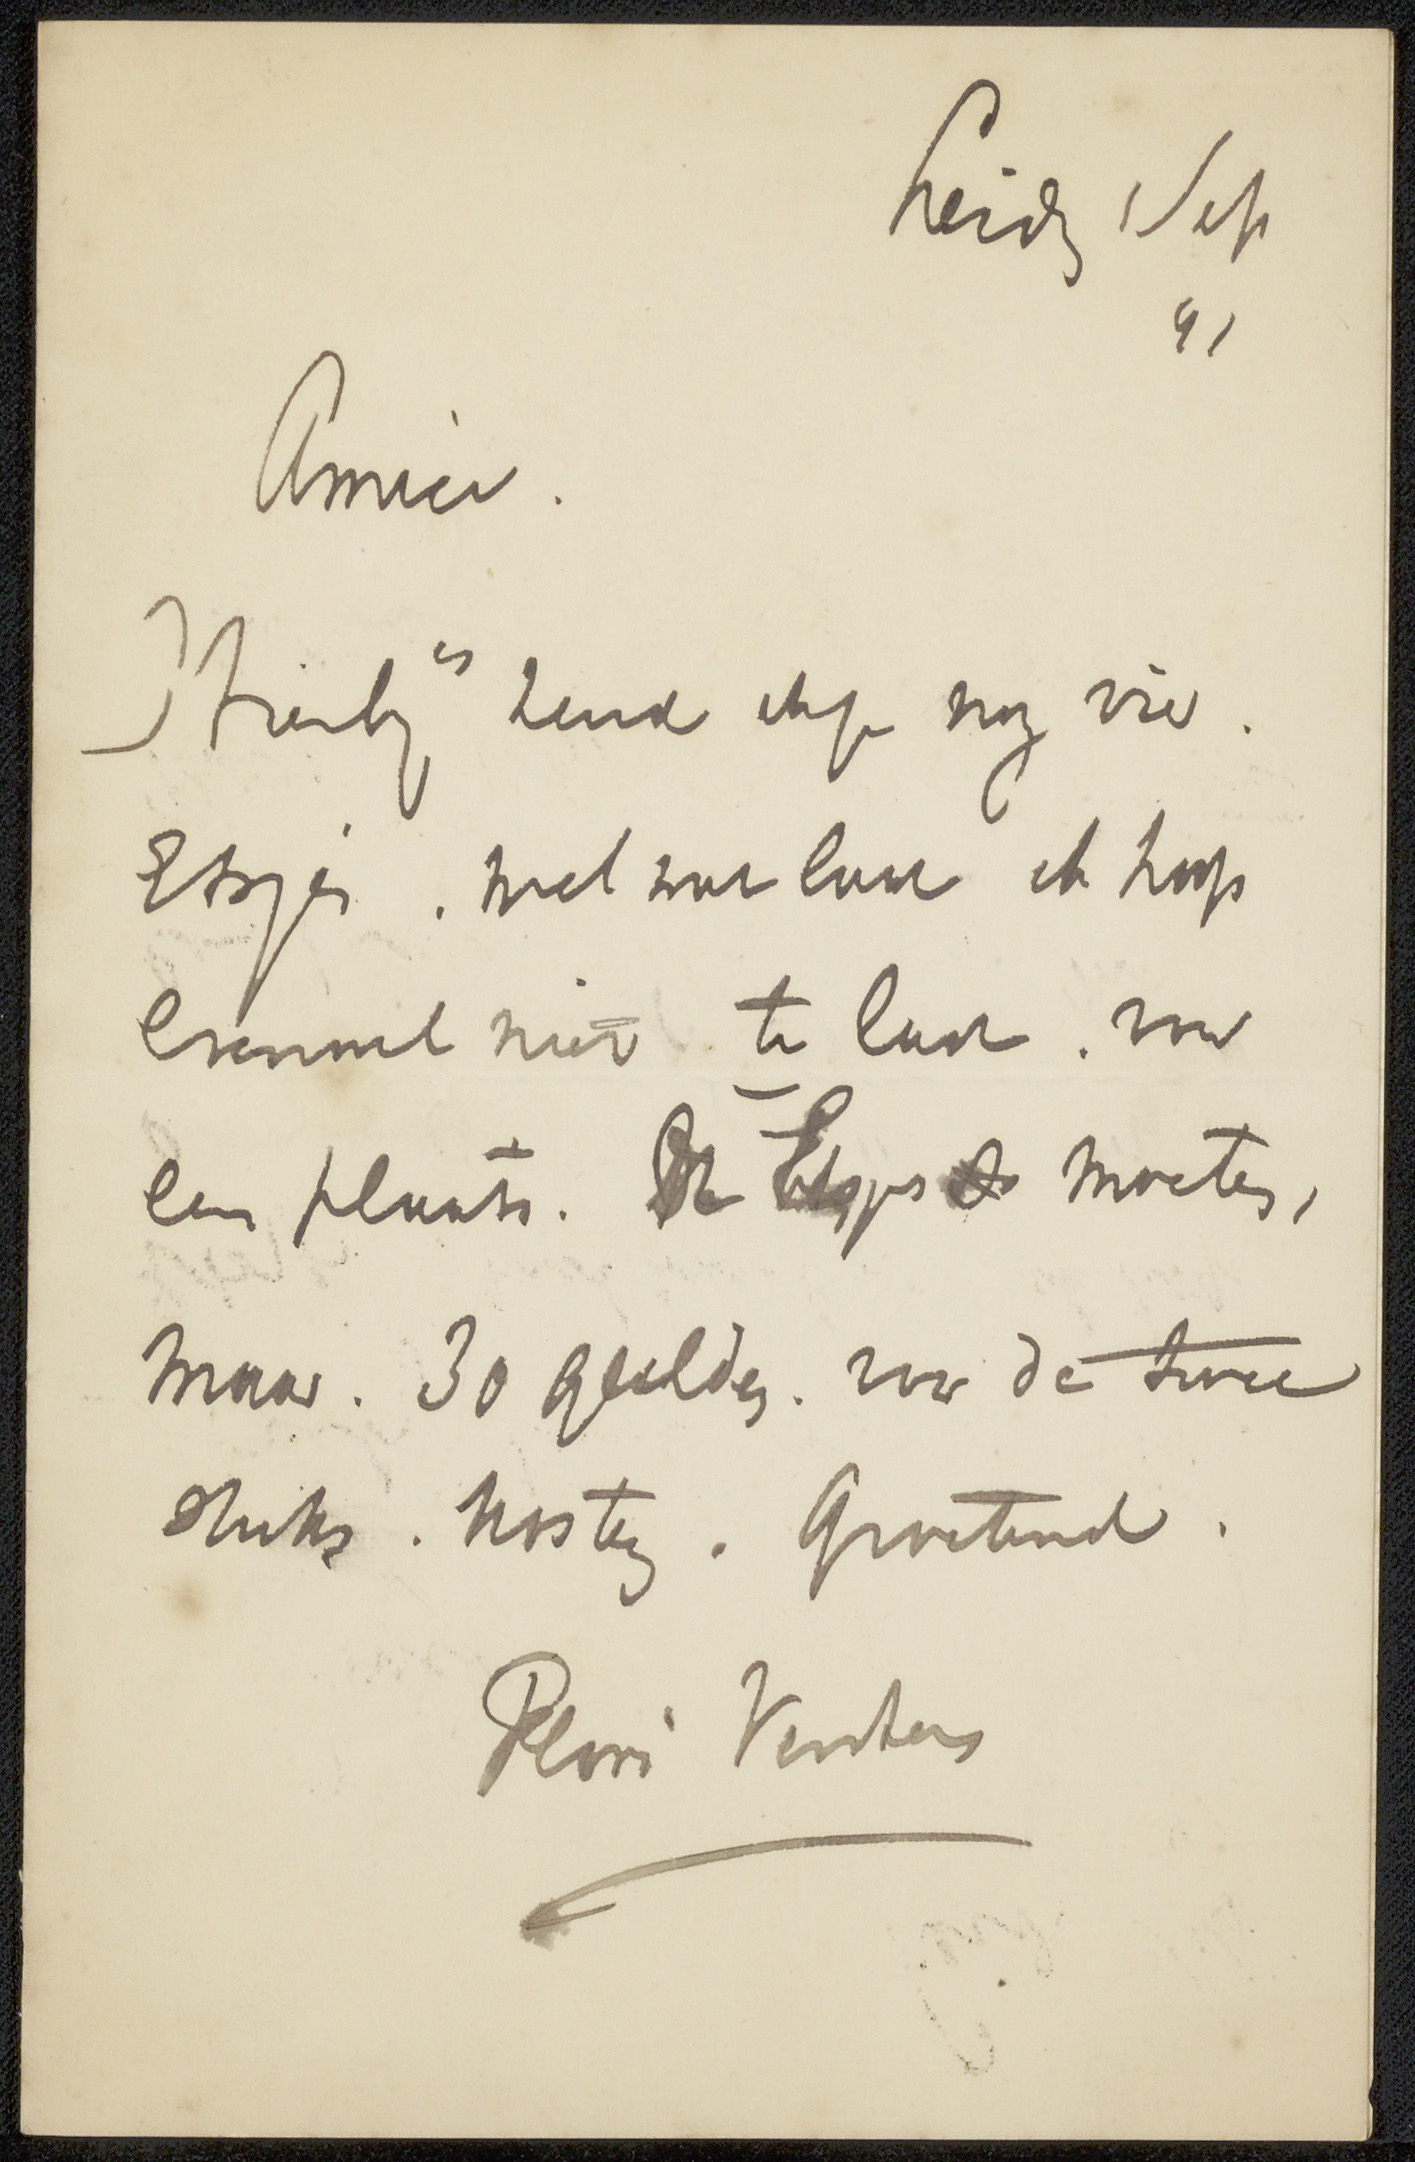 Leiden Sep
91
Amice.
Hierbij zend ik je nog vier.
Etsjes. wel wat laat ik hoop
evenwel niet te laat. voor
een plaats. De Etsjes moeten,
maar. 30 gulden. voor de twee
stuks. kosten. Groetend.
Floris Verster